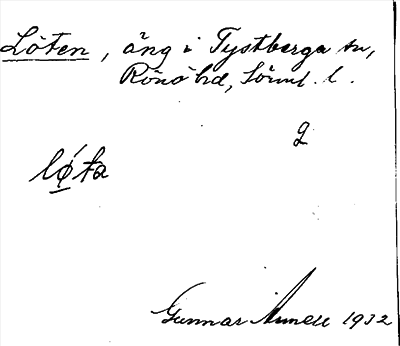 Löten, äng i Tystberga sn,
Rönö hd, Sörml. l.
g
lǿ̱ta
Gunnar 1932